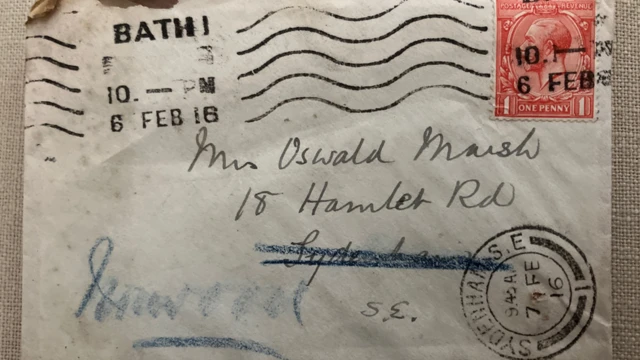 BATH 1
10. — PM
6 FEB 16
POSTAGE REVENUE
10. —
6 FEB
1 ONE PENNY 1
Mrs Oswald Marsh
18 Hamlet Rd
Sydenham
Norwood
S.E.
SYDENHAM S.E.
9.45A
7 FE
16
1